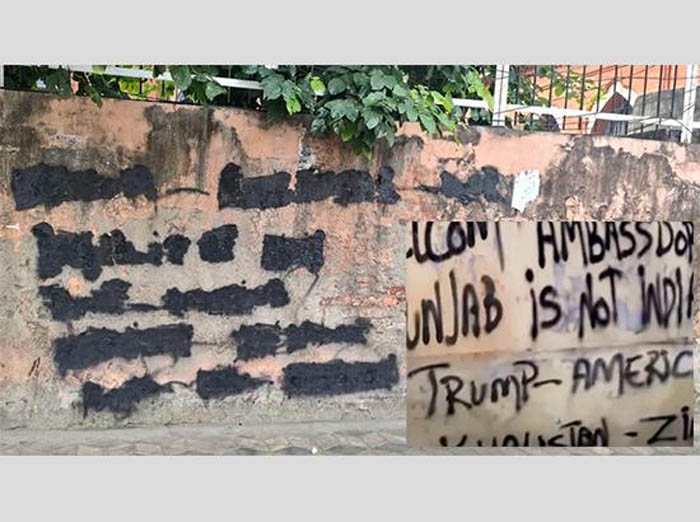 ELCOM AMBASSDOR
UNJAB is NOT INDI
TRUMP - AMERIC
KHALISTAN - ZI